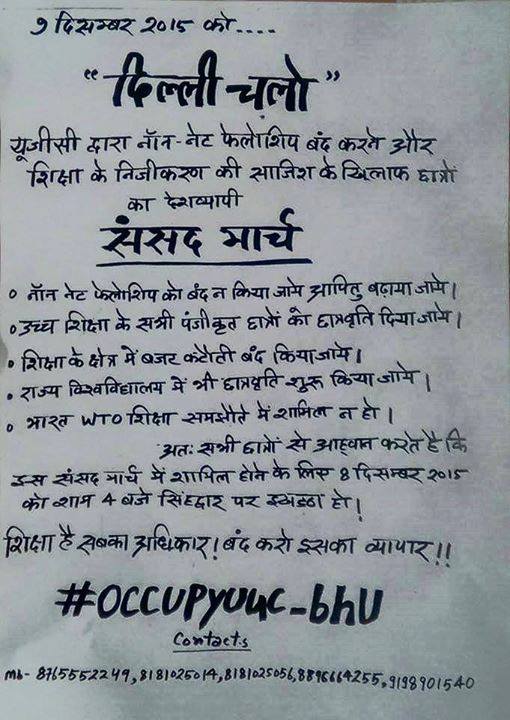 9 दिसम्बर 2015 को....
"दिल्ली चलो"
यूजीसी द्वारा नॉन-नेट फेलोशिप बंद करने और
शिक्षा के निजीकरण की साजिश के खिलाफ छात्रों
का देशव्यापी
संसद मार्च
० नॉन नेट फेलोशिप को बंद न किया जाये अपितु बढ़ाया जाये।
० उच्च शिक्षा के सभी पंजीकृत छात्रों को छात्रवृति दिया जाये।
• शिक्षा के क्षेत्र में बजट कटौती बंद किया जाये।
• राज्य विश्वविद्यालय में भी छात्रवृति शुरू किया जाये।
० भारत WTO शिक्षा समझौते में शामिल न हो।
अतः सभी छात्रों से आह्वान करते है कि
इस संसद मार्च में शामिल होने के लिए 8 दिसम्बर 2015
को शाम 4 बजे सिंहद्वार पर इक्ठ्ठा हो।
शिक्षा है सबका अधिकार! बंद करो इसका व्यापार!!
#OCCUPYUGC-bhU
Contacts
mb- 8765552249, 8181025014, 8181025056, 8896664255, 9198901540